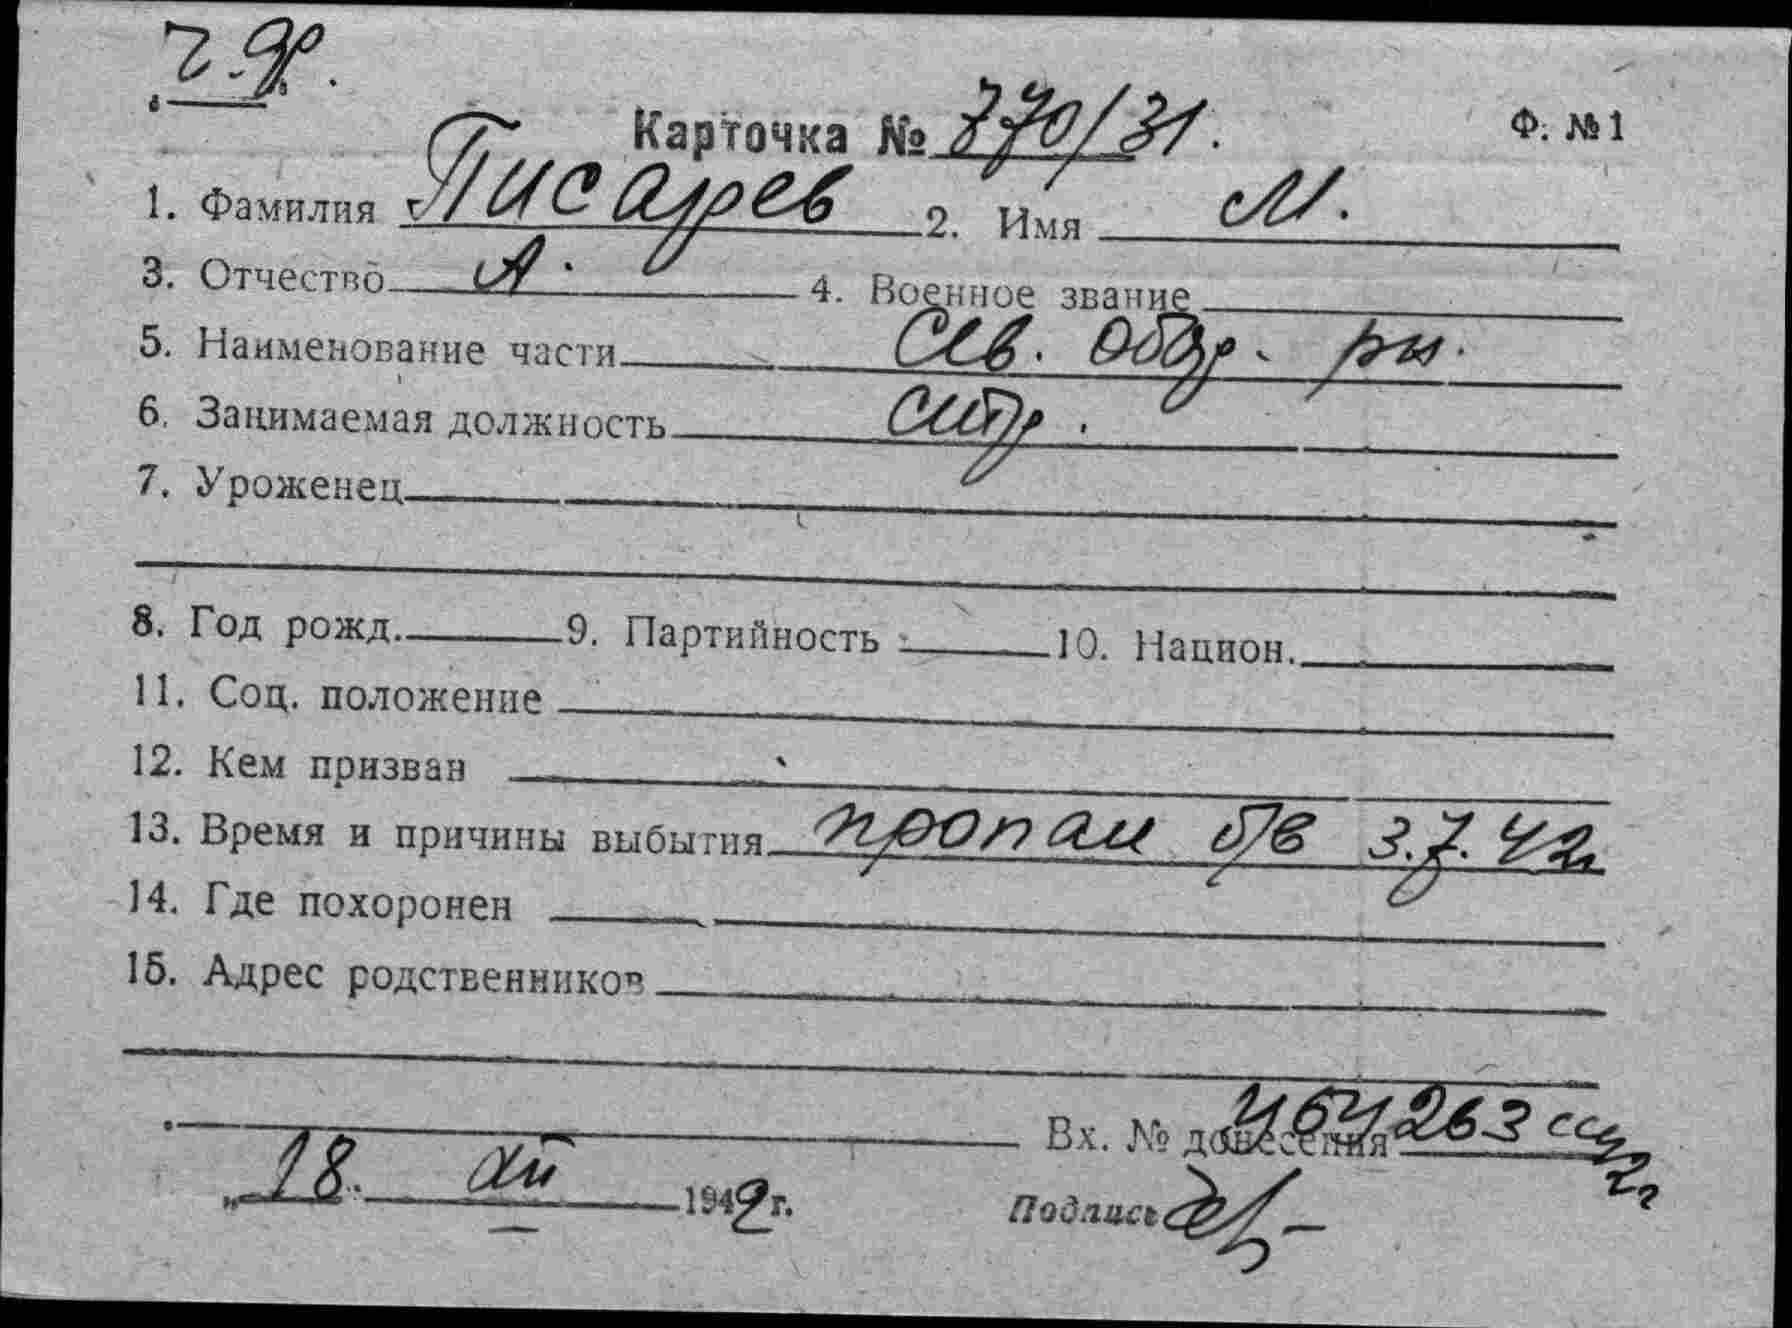 Карточка № 770/31.
Ф. № 1
1. Фамилия Писарев 2. Имя М.
3. Отчество А. 4. Военное звание
5. Наименование части Сев. обор. рн.
6. Занимаемая должность стр.
7. Уроженец
8. Год рожд. 9. Партийность 10. Национ.
11. Соц. положение
12. Кем призван
13. Время и причины выбытия пропал б/в 3.7.42г
14. Где похоронен
15. Адрес родственников
Вх. № донесения 263
„18. XII 1942 г.
Подпись